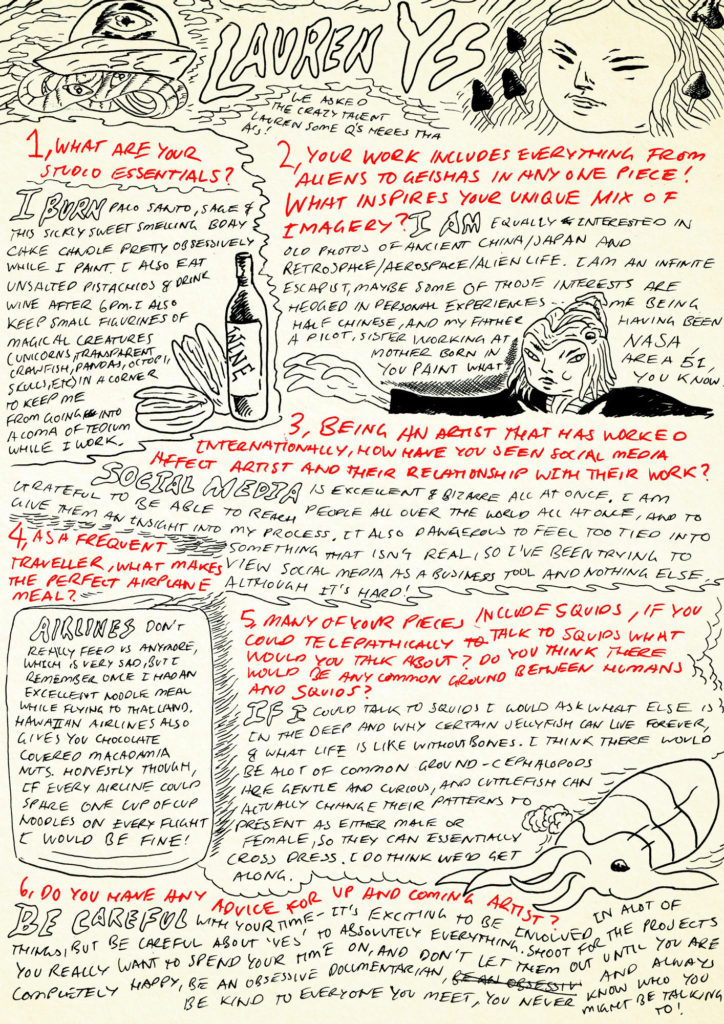 LAUREN YS
WE ASKED
THE CRAZY TALENT
LAUREN SOME Q'S HERES THA
A'S!
1, WHAT ARE YOUR
STUDIO ESSENTIALS?
I BURN PALO SANTO, SAGE &
THIS SICKLY SWEET SMELLING BDAY
CAKE CANDLE PRETTY OBSESSIVELY
WHILE I PAINT. I ALSO EAT
UNSALTED PISTACHIOS & DRINK
WINE AFTER 6PM. I ALSO
KEEP SMALL FIGURINES OF
MAGICAL CREATURES
(UNICORNS, TRANSPARENT
CRAWFISH, PANDAS, OCTOPI,
SKULLS, ETC) IN A CORNER
TO KEEP ME
FROM GOING INTO
A COMA OF TEDIUM
WHILE I WORK.
WINE
2, YOUR WORK INCLUDES EVERYTHING FROM
ALIENS TO GEISHAS IN ANY ONE PIECE!
WHAT INSPIRES YOUR UNIQUE MIX OF
IMAGERY? I AM EQUALLY INTERESTED IN
OLD PHOTOS OF ANCIENT CHINA/JAPAN AND
RETROSPACE/AEROSPACE/ALIEN LIFE. I AM AN INFINITE
ESCAPIST, MAYBE SOME OF THOSE INTERESTS ARE
HEDGED IN PERSONAL EXPERIENCES -- ME BEING
HALF CHINESE, AND MY FATHER HAVING BEEN
A PILOT, SISTER WORKING AT NASA,
MOTHER BORN IN AREA 51,
YOU PAINT WHAT YOU KNOW.
3, BEING AN ARTIST THAT HAS WORKED
INTERNATIONALLY, HOW HAVE YOU SEEN SOCIAL MEDIA
AFFECT ARTIST AND THEIR RELATIONSHIP WITH THEIR WORK?
SOCIAL MEDIA IS EXCELLENT & BIZARRE ALL AT ONCE. I AM
GRATEFUL TO BE ABLE TO REACH PEOPLE ALL OVER THE WORLD ALL AT ONCE, AND TO
GIVE THEM AN INSIGHT INTO MY PROCESS. IT ALSO DANGEROUS TO FEEL TOO TIED INTO
SOMETHING THAT ISN'T REAL, SO I'VE BEEN TRYING TO
VIEW SOCIAL MEDIA AS A BUSINESS TOOL AND NOTHING ELSE
ALTHOUGH IT'S HARD!
4, AS A FREQUENT
TRAVELLER, WHAT MAKES
THE PERFECT AIRPLANE
MEAL?
AIRLINES DON'T
REALLY FEED US ANYMORE,
WHICH IS VERY SAD, BUT I
REMEMBER ONCE I HAD AN
EXCELLENT NOODLE MEAL
WHILE FLYING TO THAILAND.
HAWAIIAN AIRLINES ALSO
GIVES YOU CHOCOLATE
COVERED MACADAMIA
NUTS. HONESTLY THOUGH,
IF EVERY AIRLINE COULD
SPARE ONE CUP OF CUP
NOODLES ON EVERY FLIGHT
I WOULD BE FINE!
5, MANY OF YOUR PIECES INCLUDE SQUIDS, IF YOU
COULD TELEPATHICALLY TO TALK TO SQUIDS WHAT
WOULD YOU TALK ABOUT? DO YOU THINK THERE
WOULD BE ANY COMMON GROUND BETWEEN HUMANS
AND SQUIDS?
IF I COULD TALK TO SQUIDS I WOULD ASK WHAT ELSE IS
IN THE DEEP AND WHY CERTAIN JELLYFISH CAN LIVE FOREVER,
& WHAT LIFE IS LIKE WITHOUT BONES. I THINK THERE WOULD
BE ALOT OF COMMON GROUND - CEPHALOPODS
ARE GENTLE AND CURIOUS, AND CUTTLEFISH CAN
ACTUALLY CHANGE THEIR PATTERNS TO
PRESENT AS EITHER MALE OR
FEMALE, SO THEY CAN ESSENTIALLY
CROSS DRESS. I DO THINK WE'D GET
ALONG.
6, DO YOU HAVE ANY ADVICE FOR UP AND COMING ARTIST?
BE CAREFUL WITH YOUR TIME - IT'S EXCITING TO BE INVOLVED IN ALOT OF
THINGS, BUT BE CAREFUL ABOUT 'YES' TO ABSOLUTELY EVERYTHING. SHOOT FOR THE PROJECTS
YOU REALLY WANT TO SPEND YOUR TIME ON, AND DON'T LET THEM OUT UNTIL YOU ARE
COMPLETELY HAPPY, BE AN OBSESSIVE DOCUMENTARIAN, BE AN OBSESSIV AND ALWAYS
BE KIND TO EVERYONE YOU MEET, YOU NEVER KNOW WHO YOU
MIGHT BE TALKING
TO!